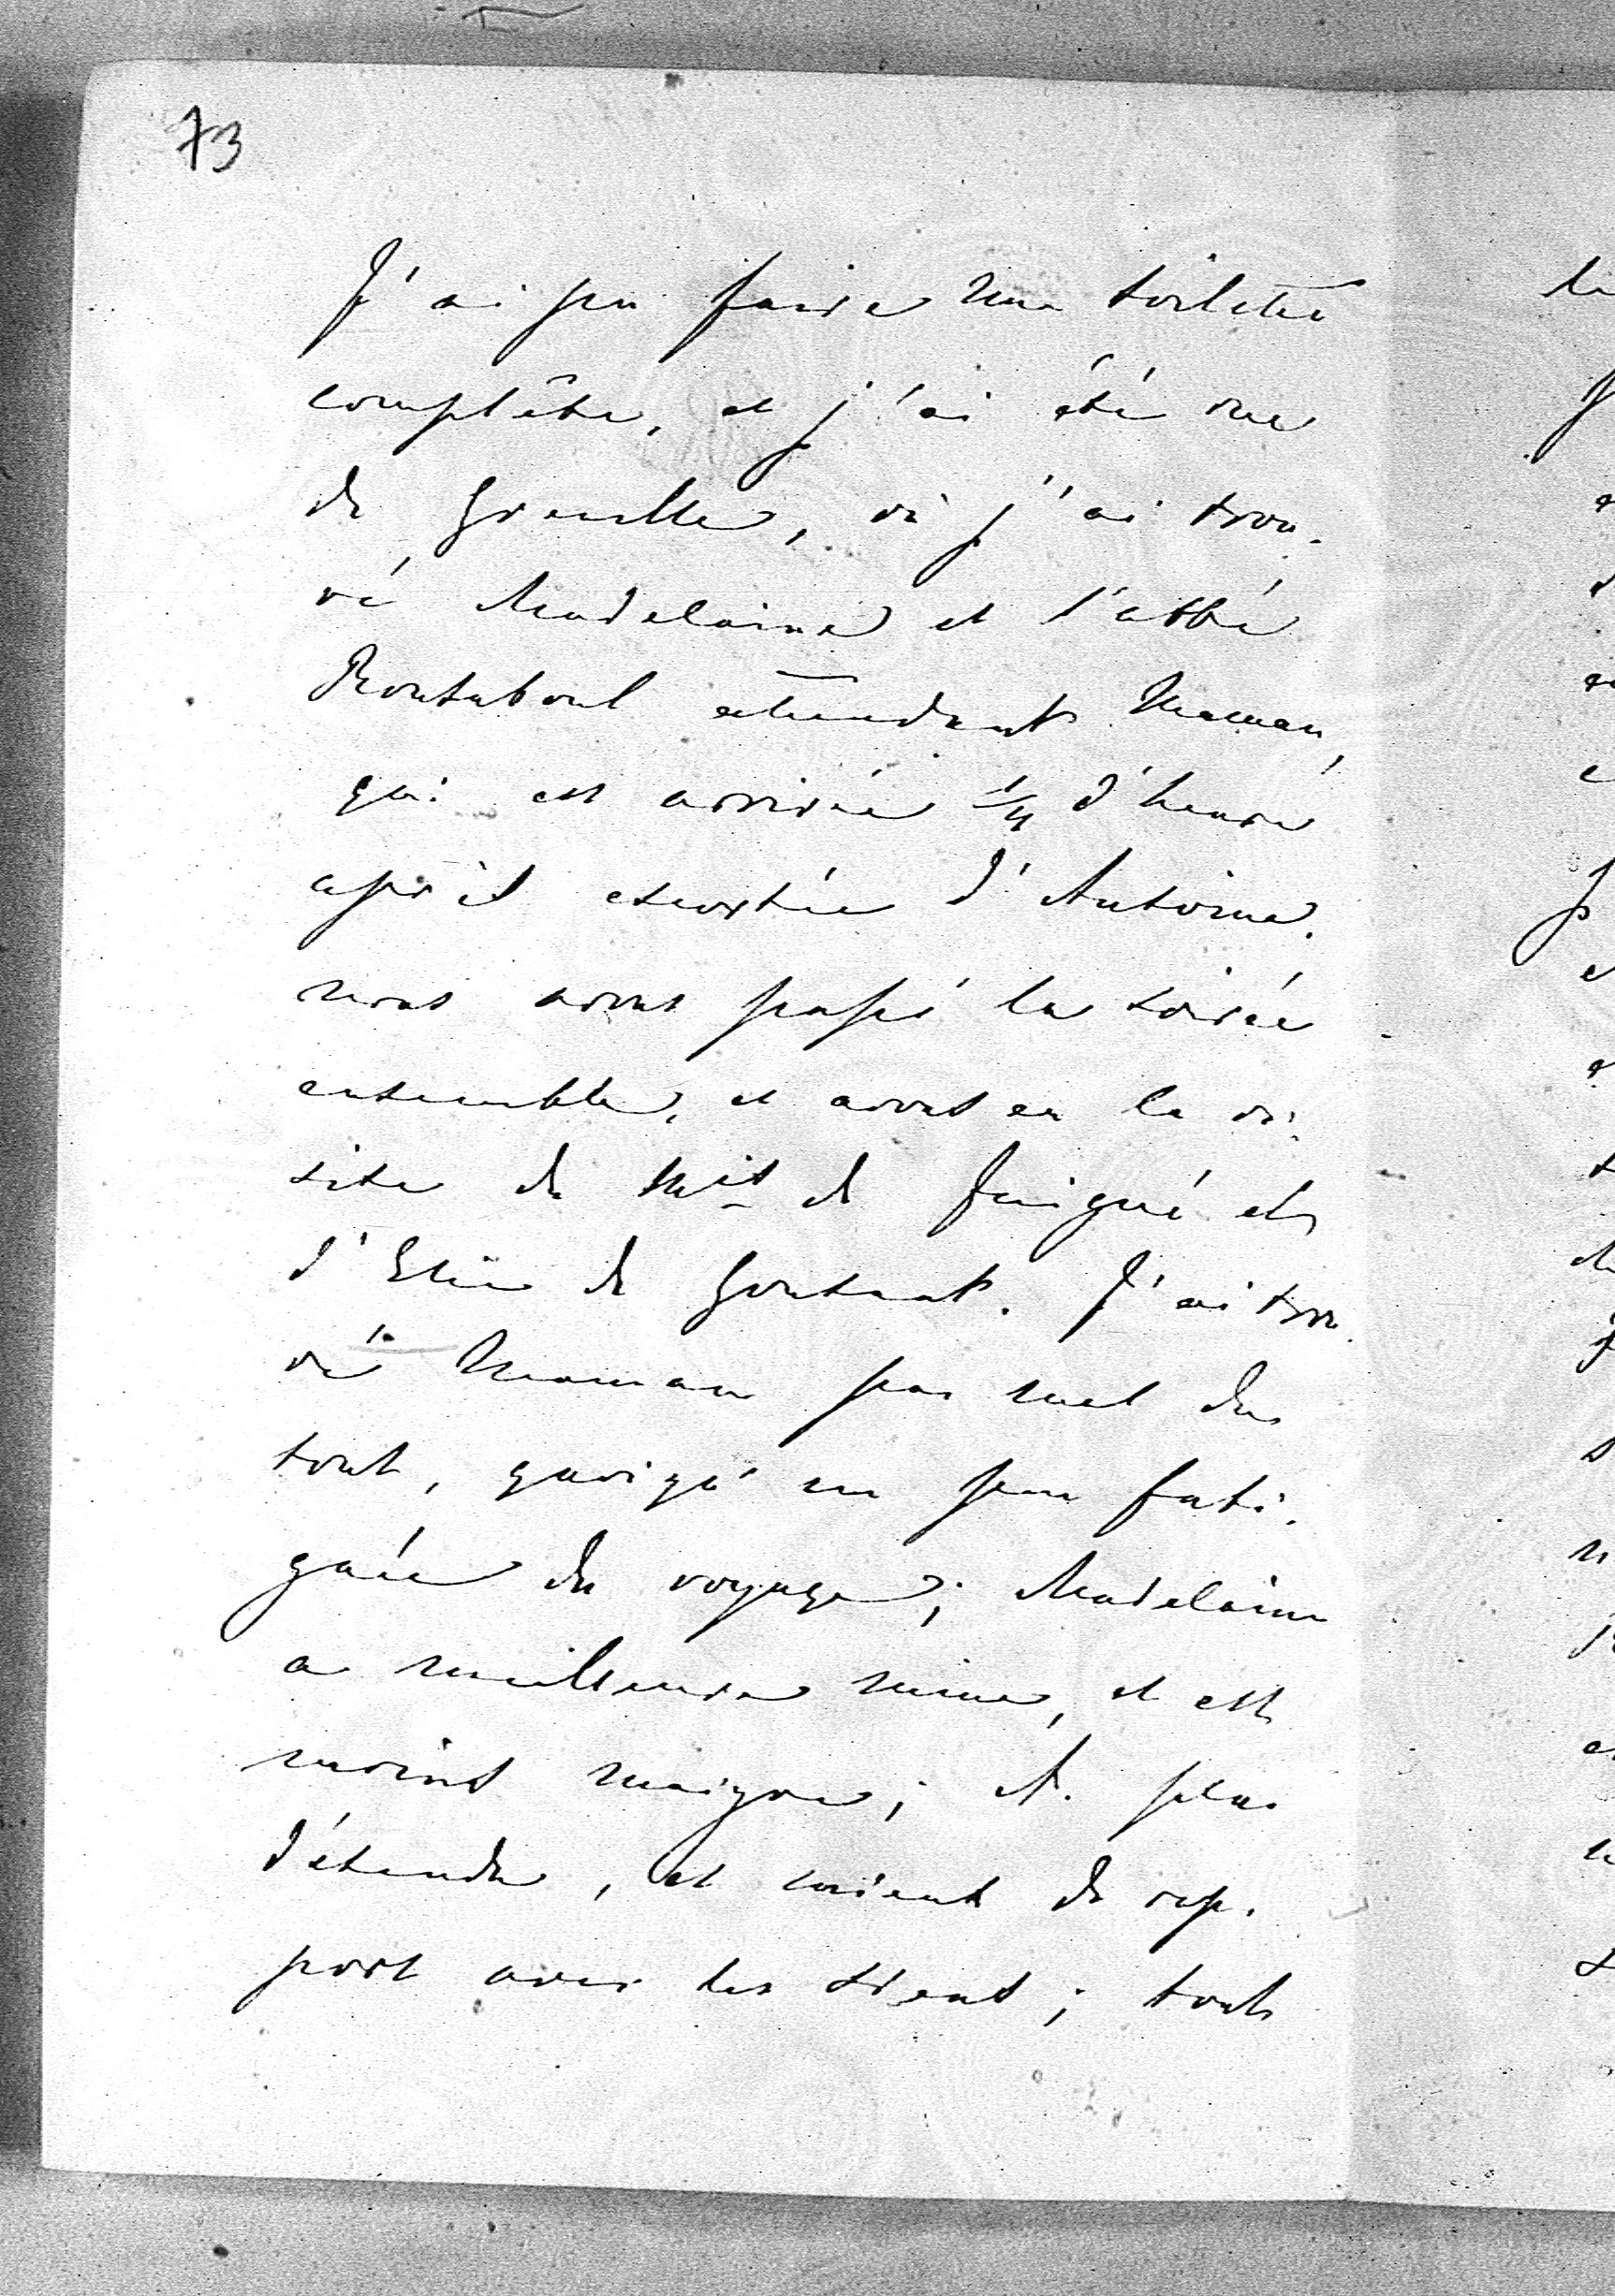 73
J'ai pu faire une toilette
complète, et j'ai été rue
de Grenelle, où j'ai trou-
vé Madelaine et l'abbé
Routaboul attendant Maman,
qui est arrivée 1/4 d'heure
après escortée d'Antoine.
nous avons passé la soirée
ensemble, et avons eu la vi-
site du Mis de Juigné et
d'Elie de Gontaut. J'ai trou-
vé Maman pas mal du
tout, quoiqu' un peu fati-
guée du voyage; Madelaine
a meilleure mine, et est
moins maigre; et plus
détendue, et moins de rap-
port avec les siens; tout